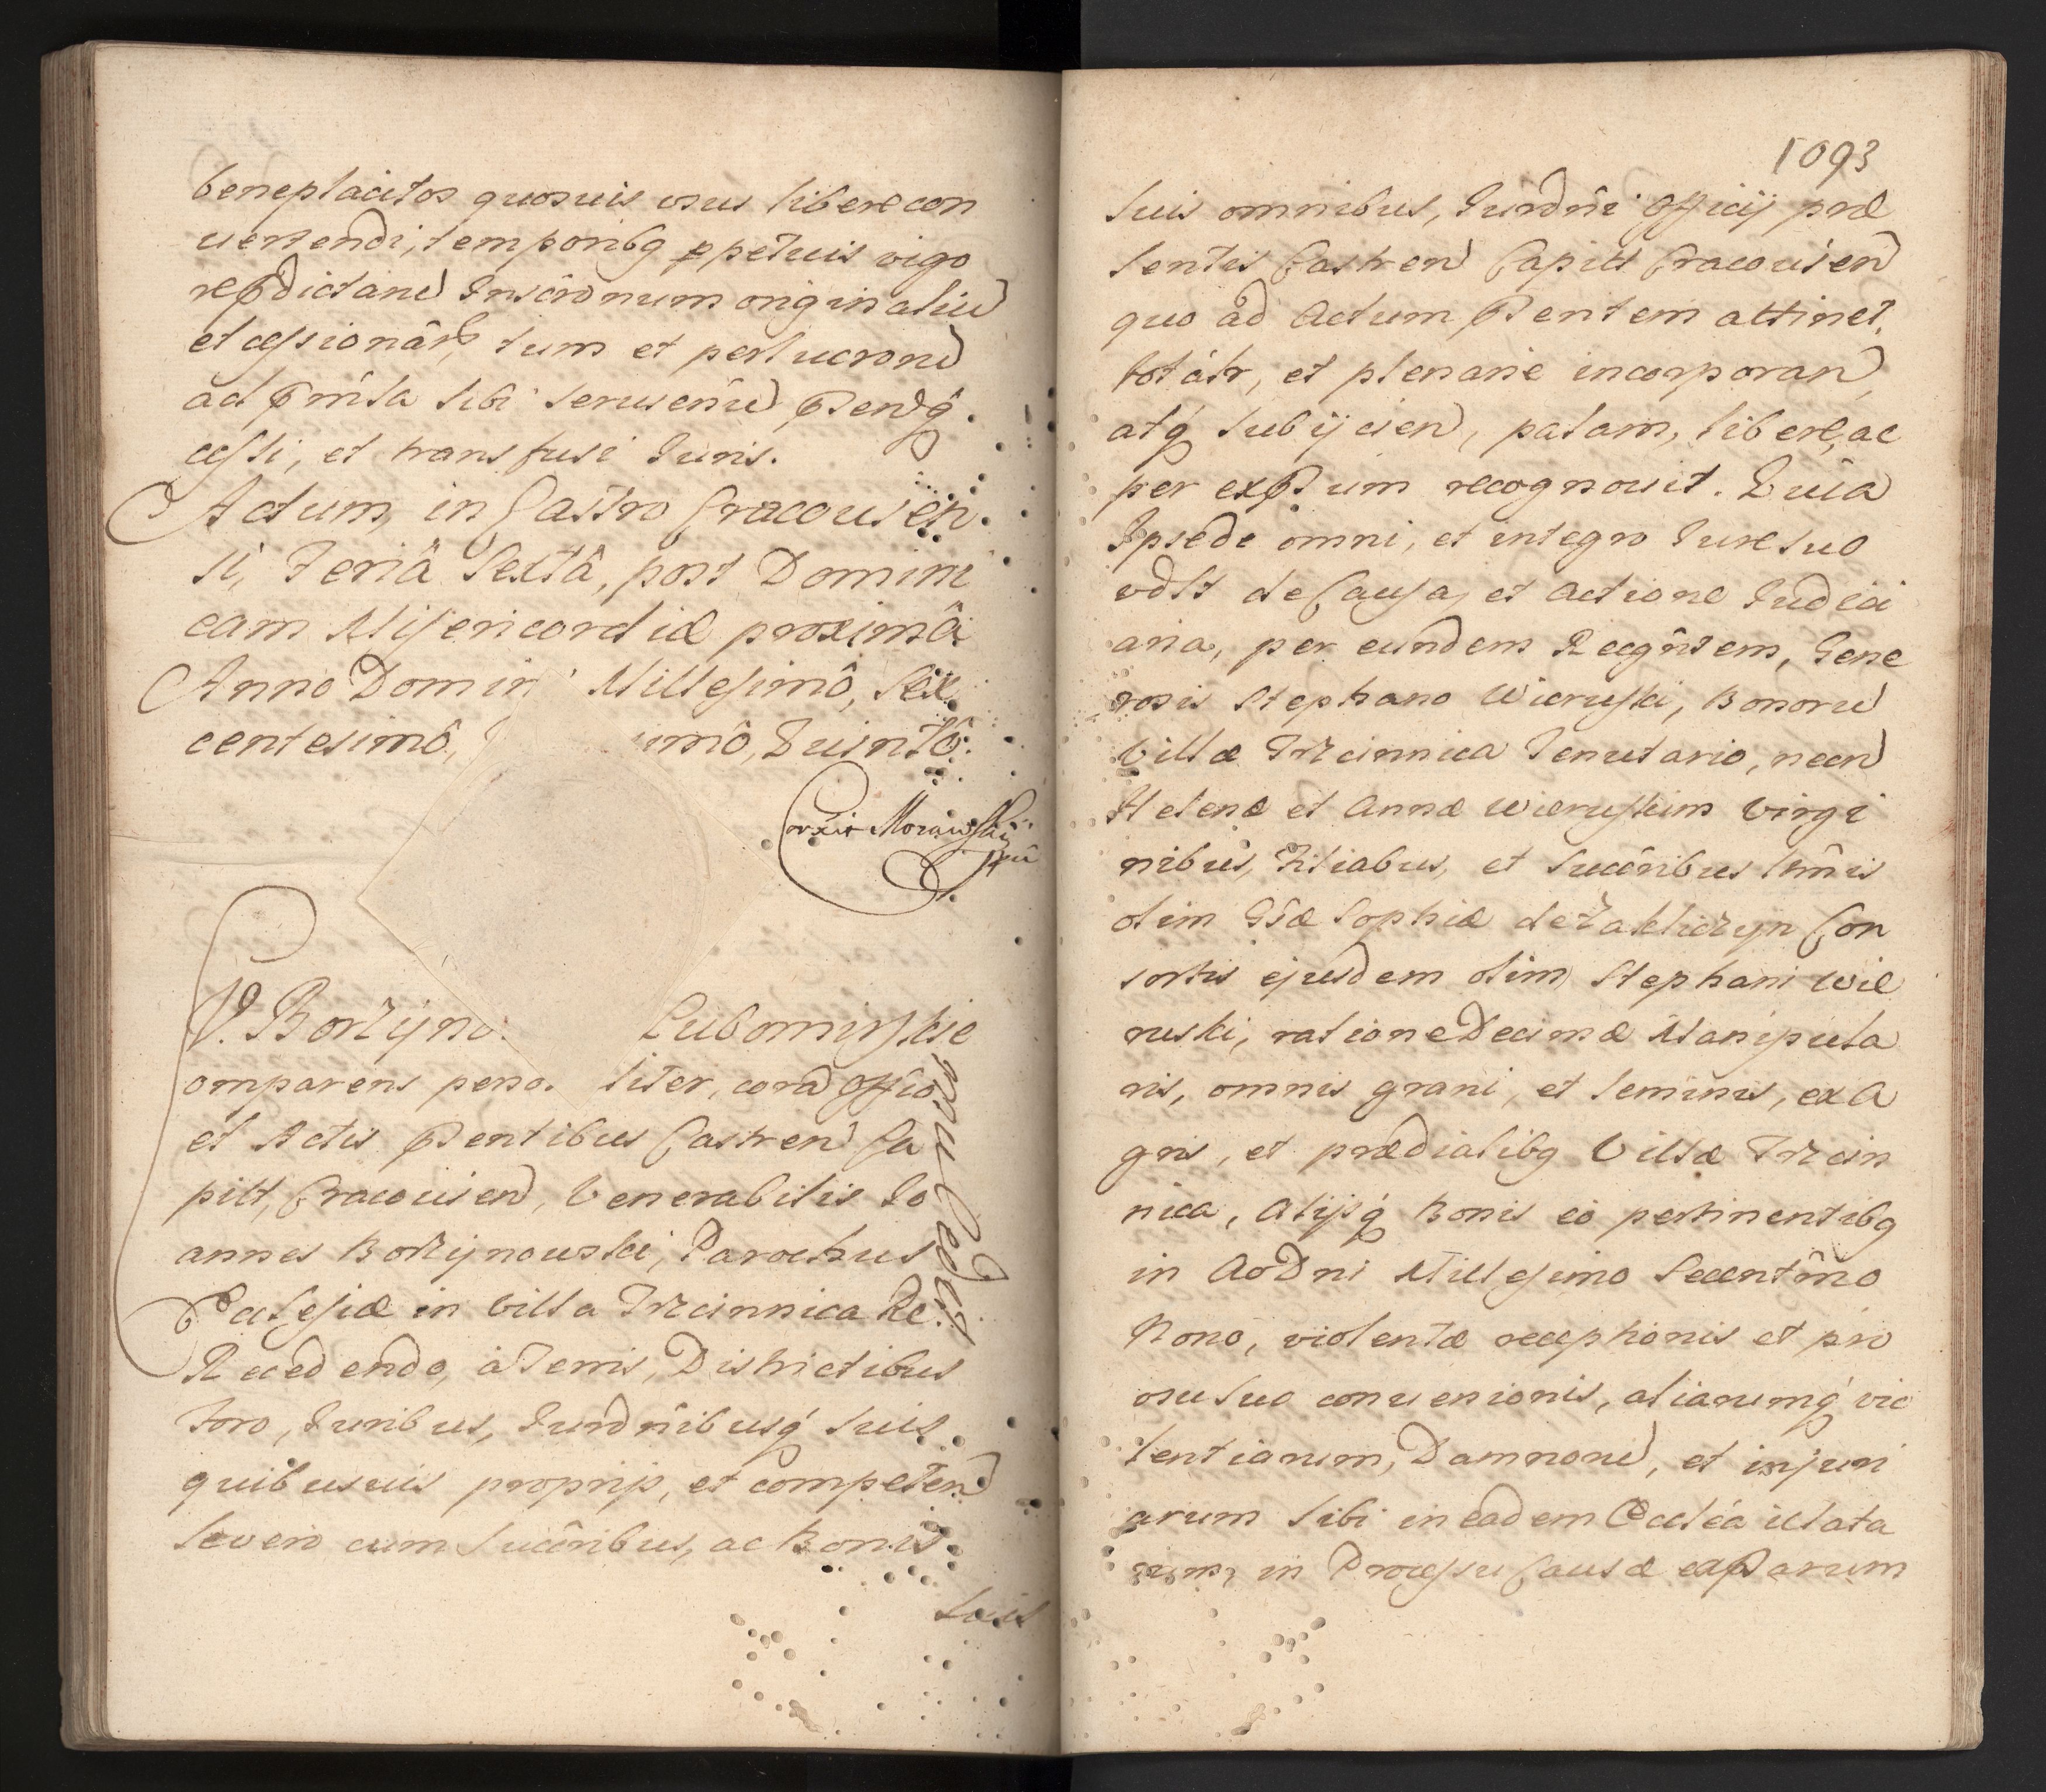 beneplacitos quosuis usus libere con
uertendi, temporibq ppetuis vigo
re pdictarũ Inscrõnum originaliũ
et cessionãrũ, tum et perlucrorũ
ad prmssa sibi seruieñũ psenq.
cessi, et transfusi Iuris.
Actum, in Castro Cracouien.
si, Feriâ Sextâ, post Domini
cam Misericordiæ proximâ
Anno Domini Millesimô, Sex
centesimô, imô, Quintô.
Morawski
V. Borzyno. Lubomirskie
omparens perso. liter, corã Officio
et Actis psentibus Castren Ca
pitt, Cracouien, Venerabilis Io
annes Borzynowski, Parochus
Ecclesiæ in Villa Trzcinnica Re.
Recedendo, à Terris, Districtibus
Foro, Iuribus, Iurdñibusq́ suis
quibusuis proprijs, et competen
se vero cum succĩribus, ac Bonis
suis
1093
suis omnibus, Iurdñi Officij præ
sentis Castren Capitt Cracouien
quo ad Actum psentem attinet,
totałr, et plenarie incorporan
atq́ subijcien, palam, libere, ac
per expssum recognouit. Quia
Ipse de omni, et integro Iure suo
vdlt de Causa, et Actione Iudici
aria, per eundem Recgñtem, Gene
rosis Stephano Wieruski, Bonorũ
Villæ Trzcinnica Tenutario, necn
Helenæ et Annæ Wieruskim Virgi
nibus, Filiabus, et succĩribus lĩmis
olim Gsæ Sophiæ de Zakliczyn Con
sortis ejusdem olim Stephani Wie
ruski, ratione Decimæ Manipula
ris, omnis grani, et seminis, ex A
gris, et prædialibq Villæ Trzcin
nica, Alijsq́ Bonis eò pertinentibq
in Ao Dni Millesimo Sexcentm̃o
Nono, violentæ receptionis et pro
usu suo conuersionis, aliarumq́ vio
lentiarum, Damnorũ, et injuri
arum sibi in eadem Eccléa illata
rum, in Processu Causæ expssarum